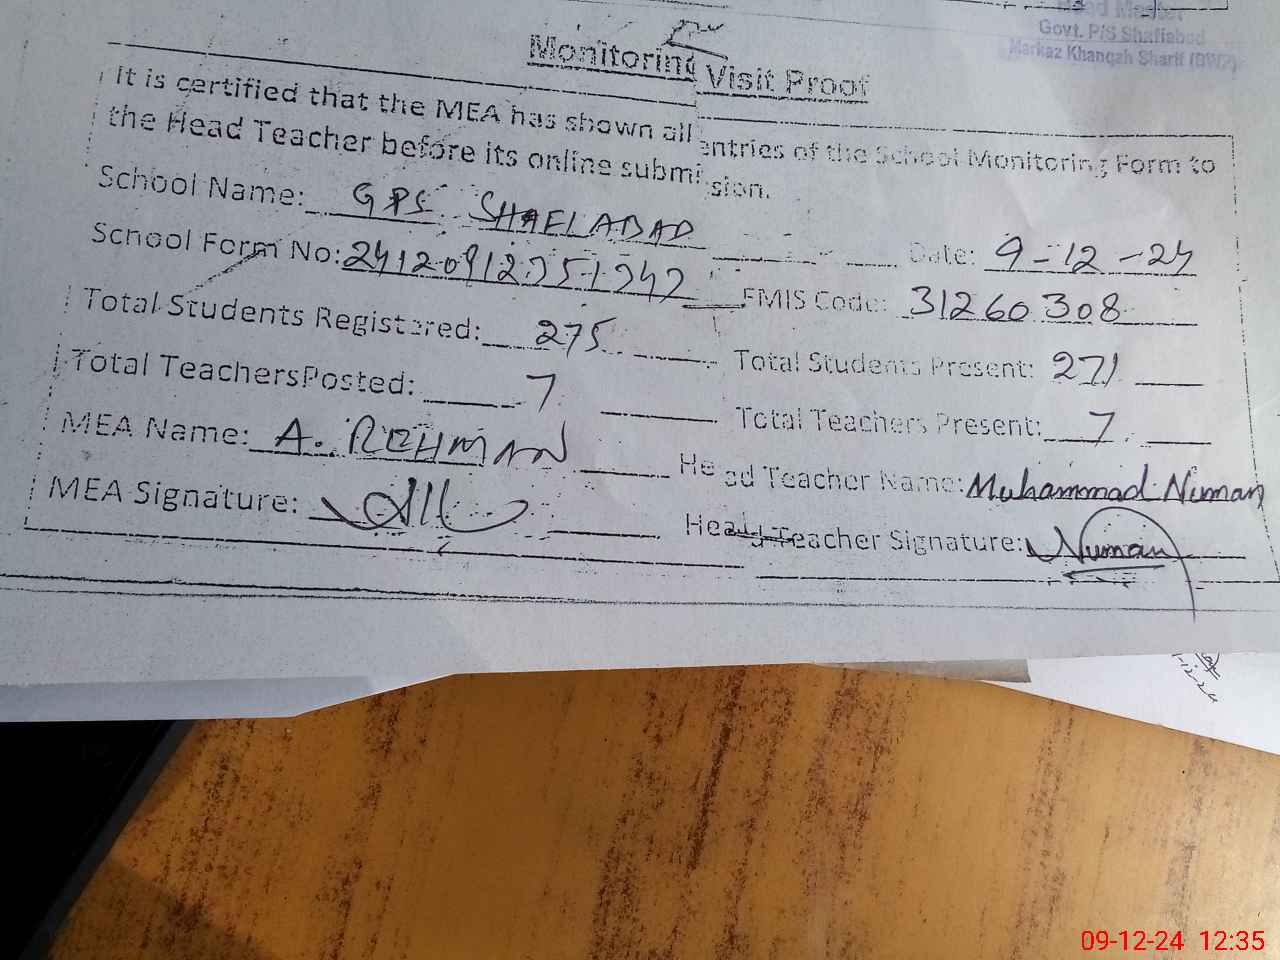 Head Master
Govt. P/S Shafiabad
Markaz Khanqah Sharif (BWP)
Monitoring Visit Proof
It is certified that the MEA has shown all entries of the School Monitoring Form to
the Head Teacher before its online submission.
School Name: GPS SHAFIABAD Date: 9-12-24
School Form No: EMIS Code: 31260308
Total Students Registered: 275 Total Students Present: 271
Total TeachersPosted: 7 Total Teachers Present: 7
MEA Name: A. REHMAN Head Teacher Name: Muhammad Numan
MEA Signature: Head Teacher Signature: Numan
09-12-24 12:35